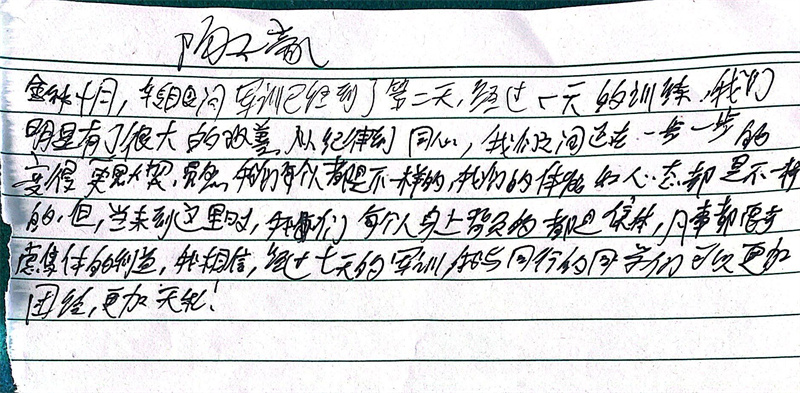 金秋十月，转眼间军训已经到了第二天，经过一天的训练，我们
明显有了很大的改善，从纪律到同心，我们之间正在一步一步的
变得更默契，虽然，我们每个人都是不一样的，我们的体能和心态都是不一样
的，但，当来到这里时，我们每个人身上背负的都是集体，凡事都要考
虑集体的利益，我相信，经过七天的军训，我与同行的同学们可以更加
团结，更加天！